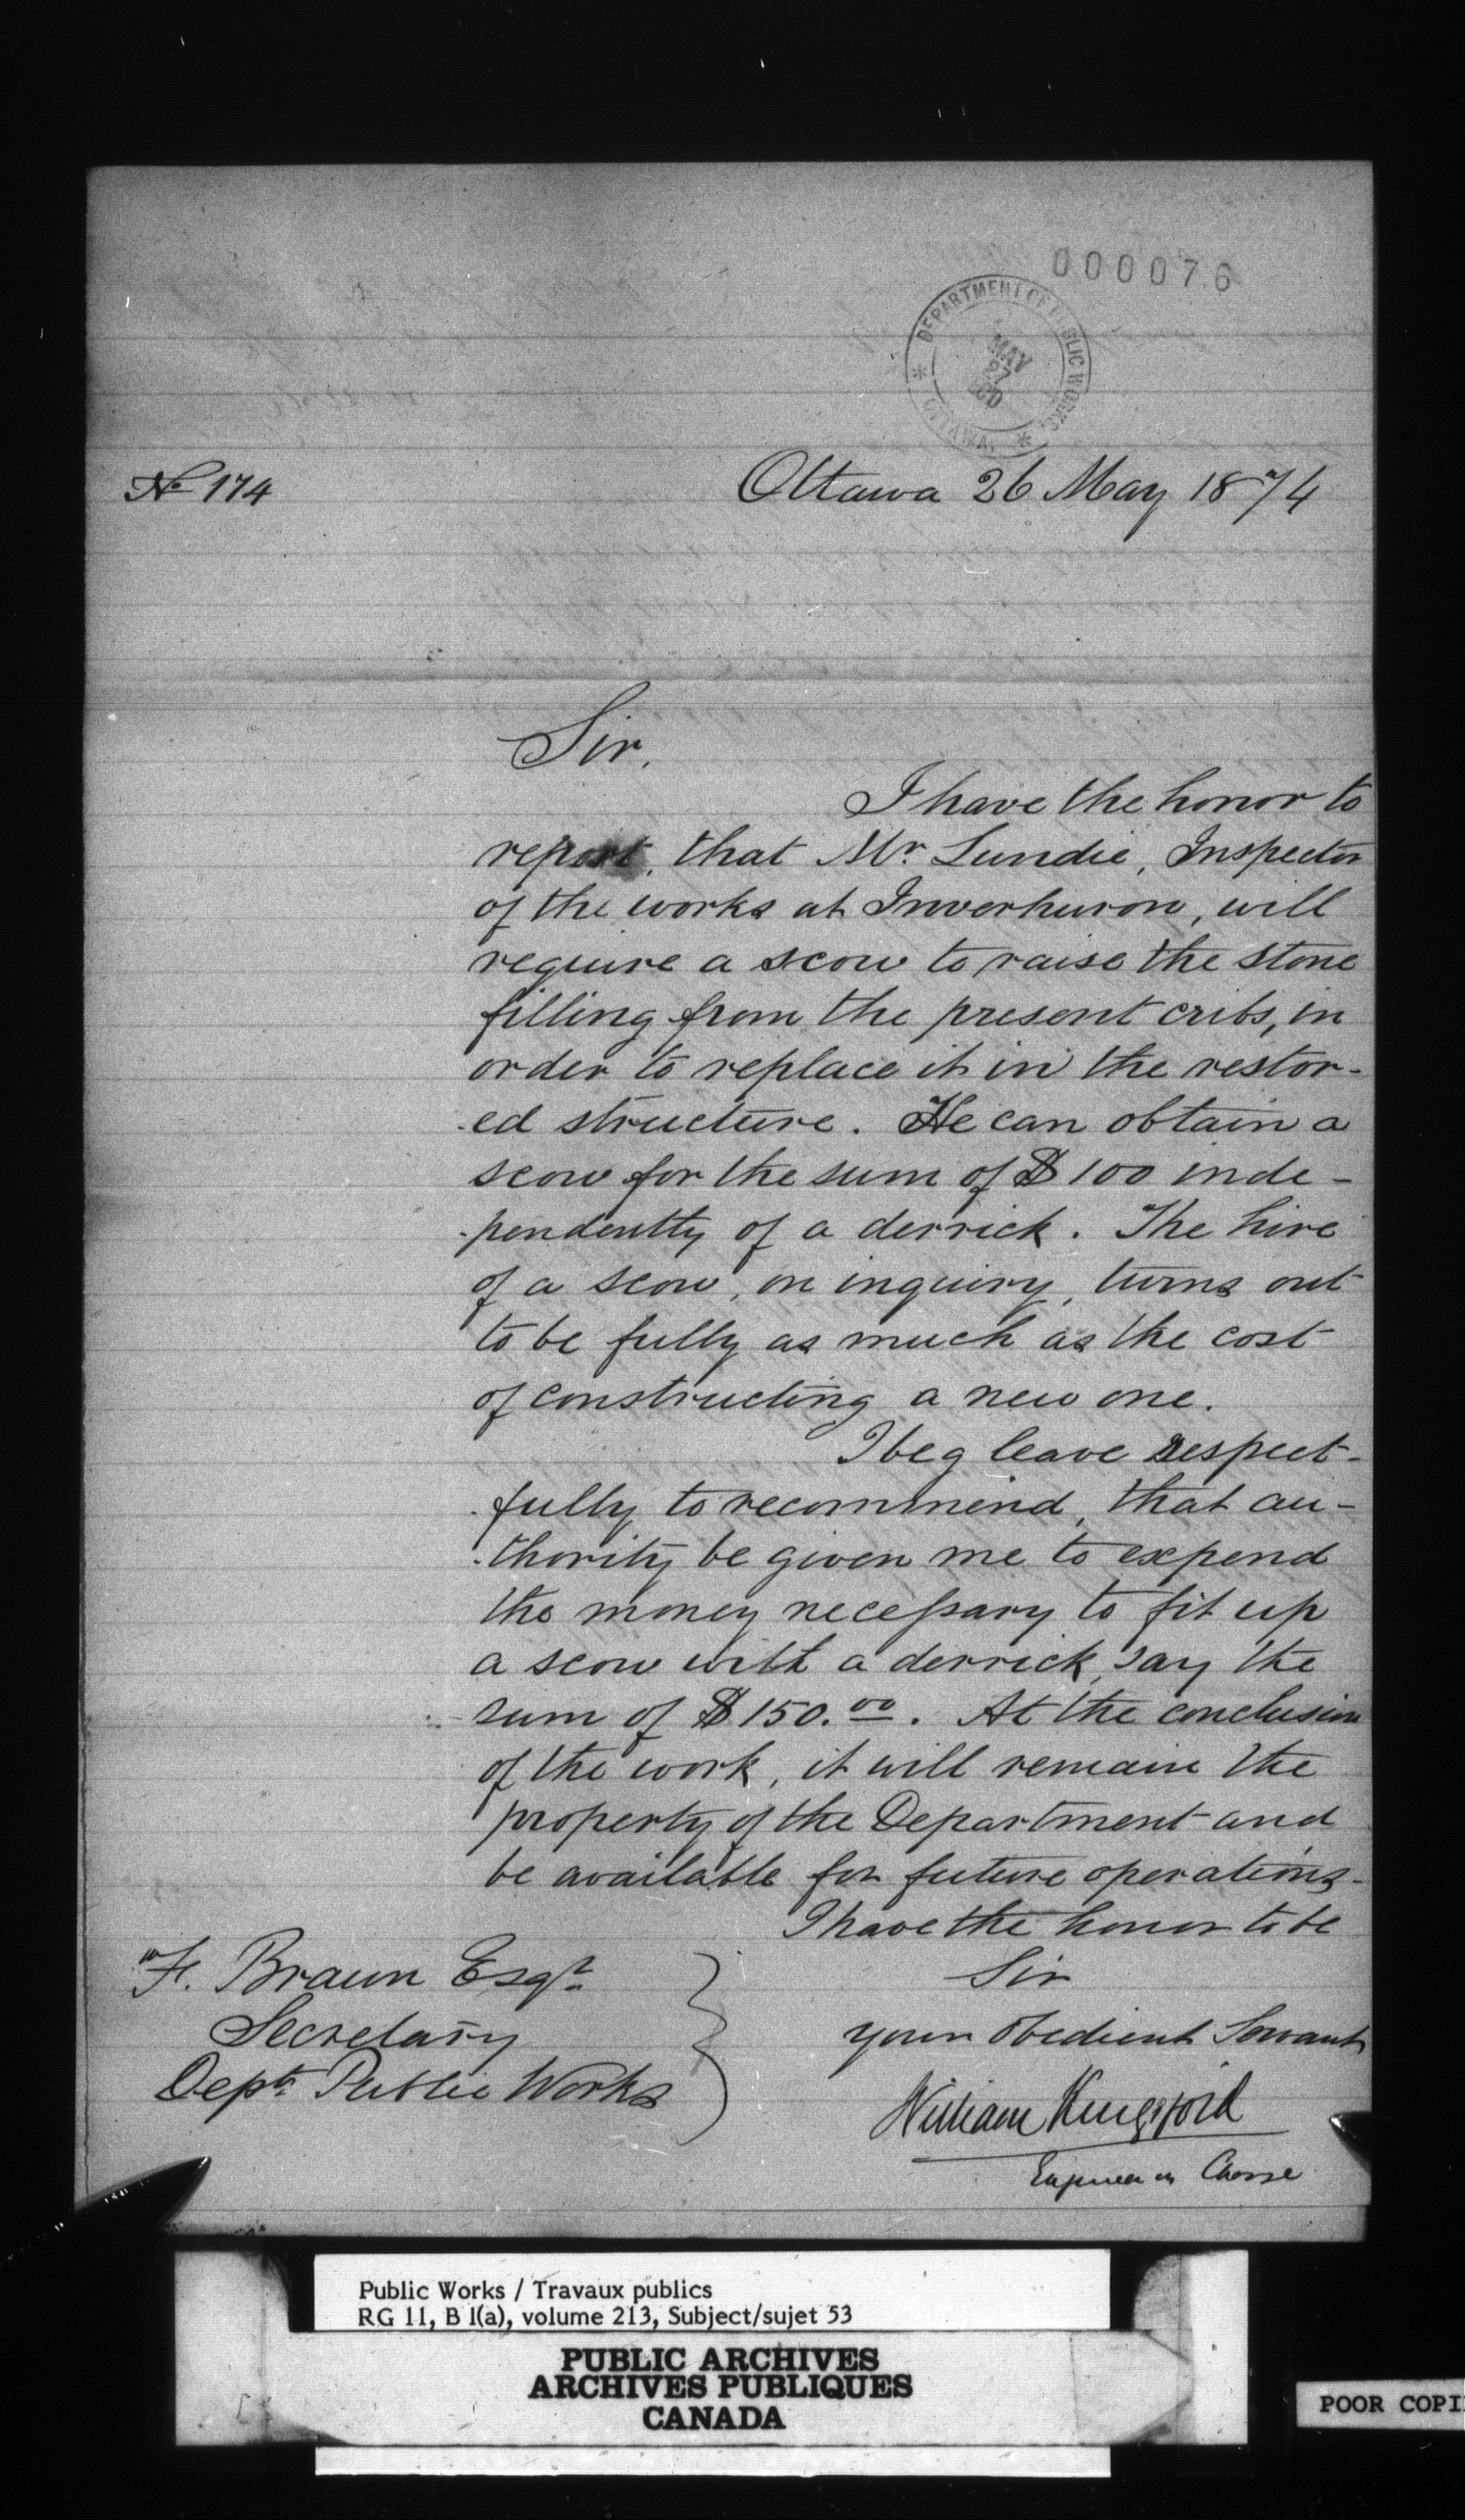 000076
DEPARTMENT OF PUBLIC WORKS
MAY
27
OTTAWA
No 174
Ottawa 26 May 1874
Sir,
I have the honor to
report, that Mr. Lundie, Inspector
of the works at Inverhuron, will
require a scow to raise the stone
filling from the present cribs, in
order to replace it in the restor-
-ed structure. He can obtain a
scow for the sum of $100 inde-
-pendently of a derrick. The hire
of a scow, on inquiry, turns out
to be fully as much as the cost
of constructing a new one.
I beg leave respect-
-fully to recommend, that au-
-thority be given me to expend
the money necessary to fit up
a scow with a derrick, say the
sum of $150.00. At the conclusion
of the work, it will remain the
property of the Department and
be available for future operations.
I have the honor to be
Sir
your obedient Servant
William Kingsford
Engineer in Charge
F. Braun Esqr.
Secretary
Dept. Public Works
Public Works / Travaux publics
RG 11, B 1(a), volume 213, Subject/sujet 53
PUBLIC ARCHIVES
ARCHIVES PUBLIQUES
CANADA
POOR COPI